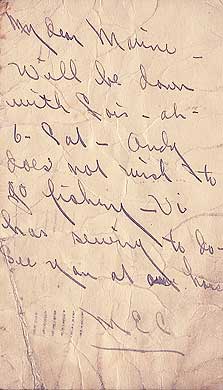 My dear Maime –
Will be down
with Lois – ah-
6 – Sat – Andy
does not wish to
go fishing – Vi
has sewing to do –
See you at our house
MEC